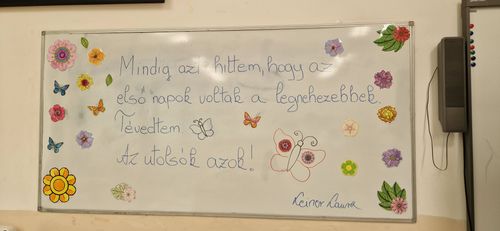 Mindig azt hittem, hogy az
első napok voltak a legnehezebbek.
Tévedtem.
Az utolsók azok!
Laura